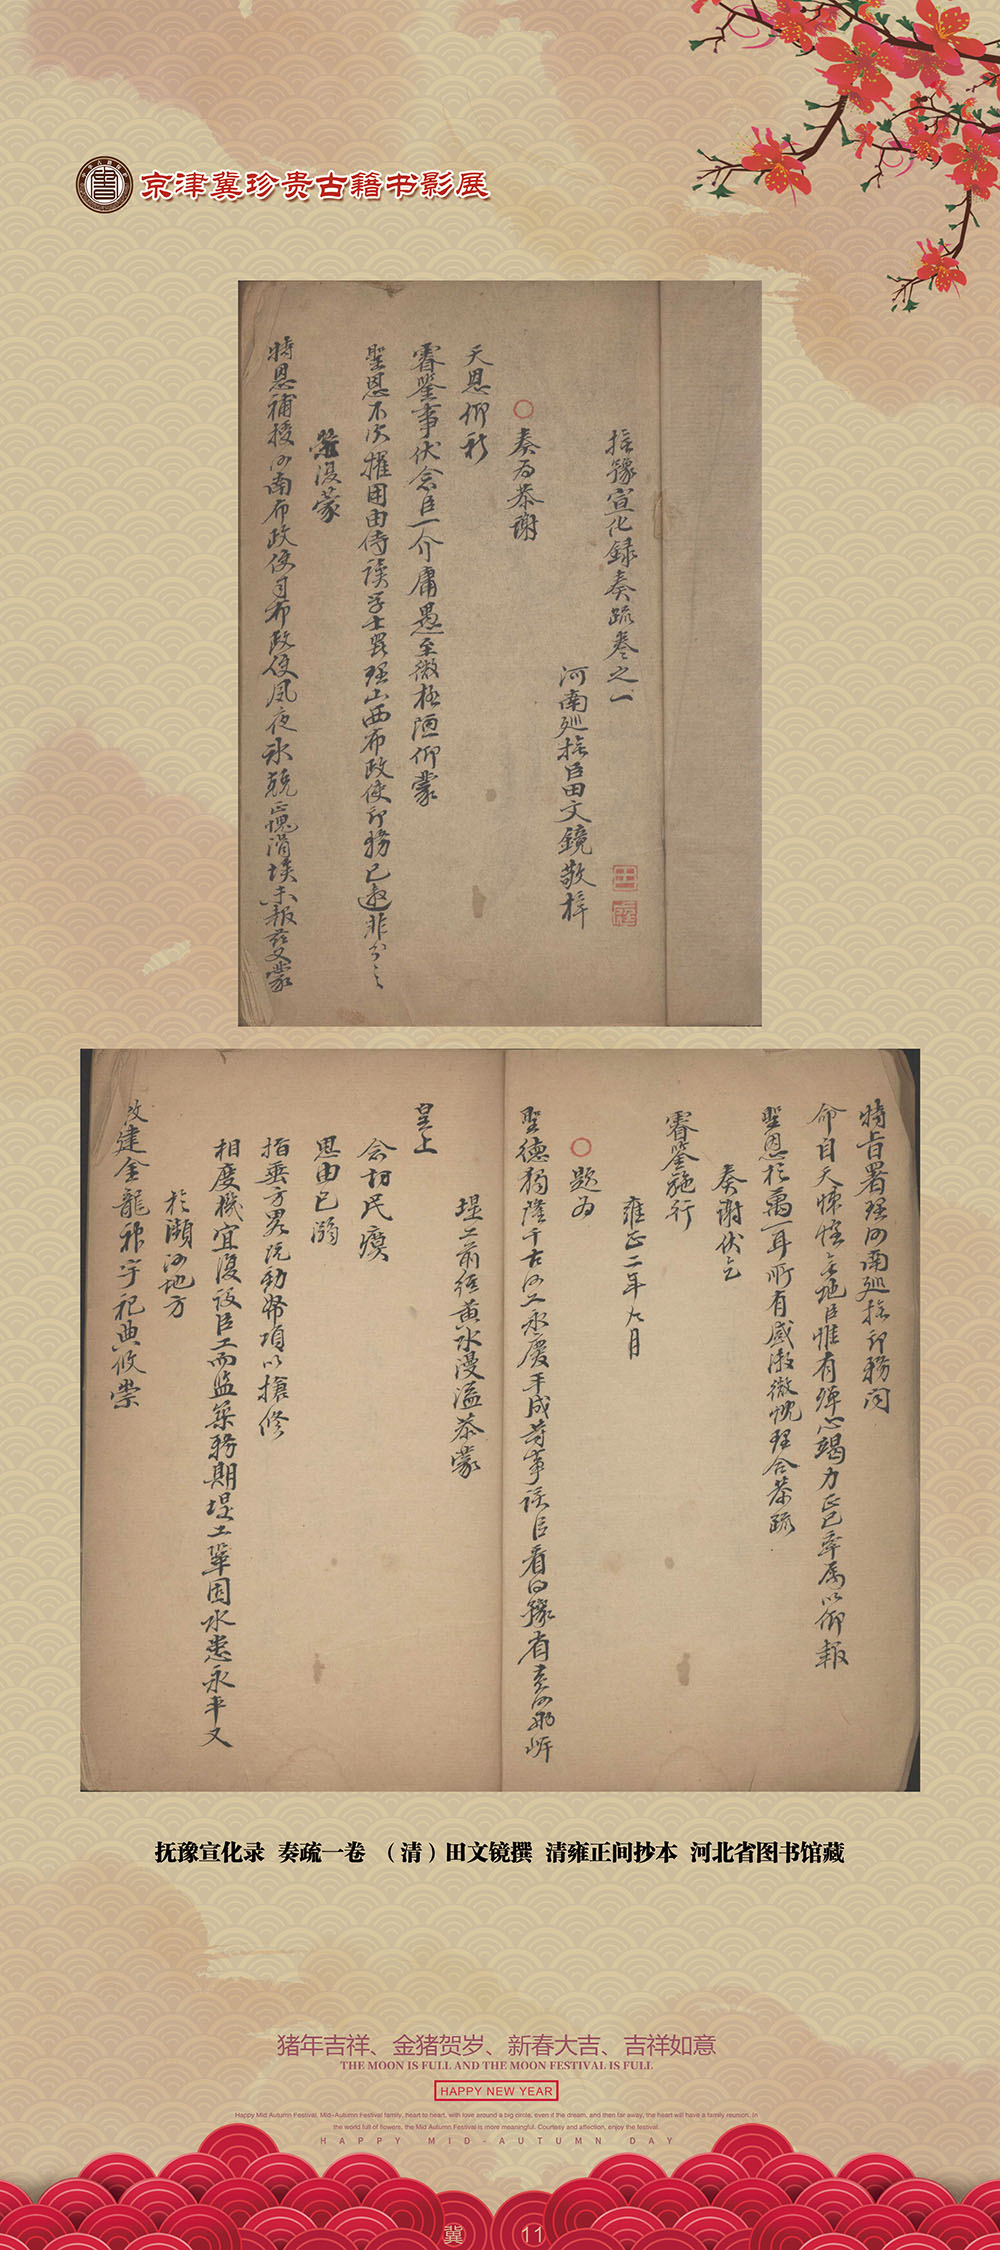 京津冀珍贵古籍书影展
撫豫宣化録奏疏卷之一
河南巡撫臣田文鏡敬梓
奏為恭謝
天恩仰祈
睿鑒事伏念臣一介庸愚至微極陋仰蒙
聖恩不次擢用由侍讀學士署理山西布政使印務已邀非分之
榮復蒙
特恩補授河南布政使司布政使夙夜氷兢正愧涓埃未報兹又蒙
特旨署理河南巡撫印務聞
命自天悚惶無地臣惟有殫心竭力正己率属以仰報
聖恩於萬一耳所有感激微忱理合恭疏
奏謝伏乞
睿鑒施行
雍正二年九月
題為
聖德獨隆千古河工永慶平成等事該臣看得豫省黄河兩岸
堤工前經黄水漫溢恭蒙
皇上
念切民瘼
思由己溺
指垂方畧既動帑項以搶修
相度機宜復設臣工而監築務期堤工鞏固水患永平又
於瀕河地方
改建金龍神宇祀典攸崇
抚豫宣化录 奏疏一卷 （清）田文镜撰 清雍正间抄本 河北省图书馆藏
猪年吉祥、金猪贺岁、新春大吉、吉祥如意
THE MOON IS FULL AND THE MOON FESTIVAL IS FULL
HAPPY NEW YEAR
Happy Mid Autumn Festival, Mid-Autumn Festival family, heart to heart, with love around a big circle, even if the dream, and then far away, the heart will have a family reunion. In
the world full of flowers, the Mid Autumn Festival is more meaningful. Courtesy and affection, enjoy the festival.
HAPPY MID-AUTUMN DAY
冀 11